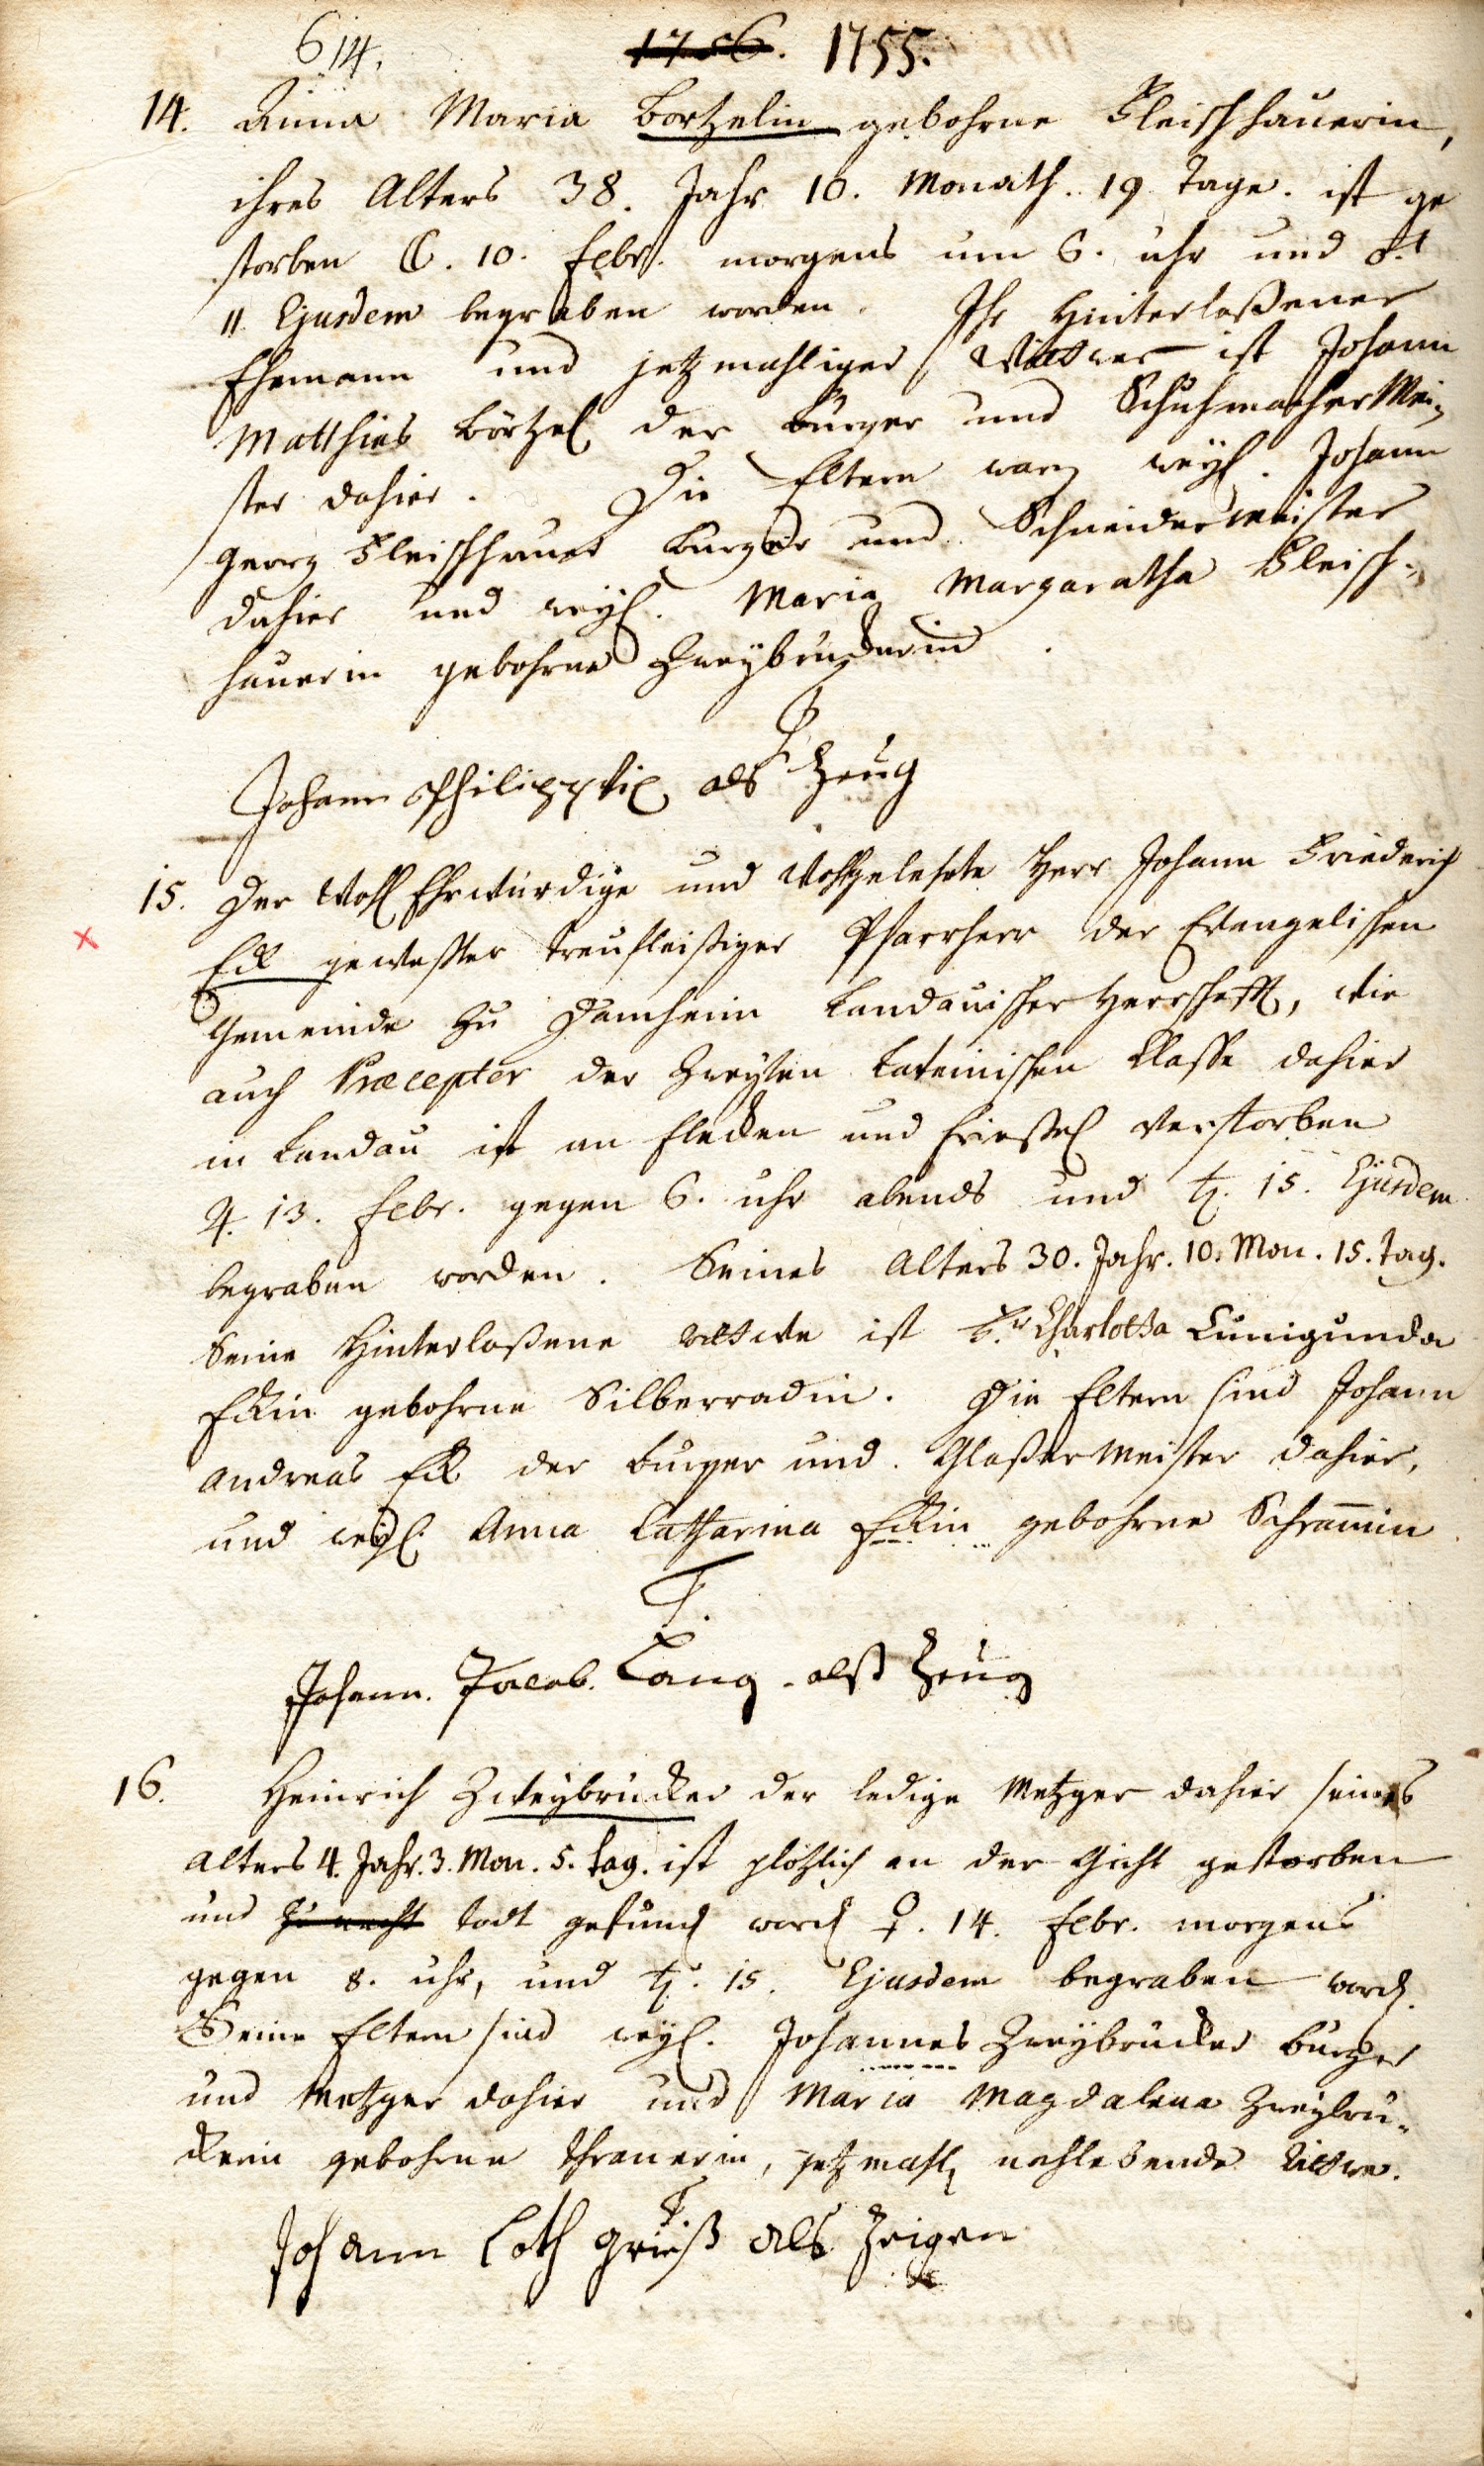 614.
1756. 1755.
14. Anna Maria Bortzelin gebohrne Fleischhauerin,
ihres Alters 38. Jahr 10. Monath. 19 Tage. ist ge
storben ☾. 10. Febr. morgens um 6. uhr und ♂.
11 Ejusdem begraben worden. Ihr Hinterlaßener
Ehemann und jetzmahliger Wittwer ist Johann
Matthias Börtzel der Burger und Schuhmacher Mei-
ster dahier. Die Eltern waren weyl. Johann
Georg Fleischhauer Burger und Schneidermeister
dahier und weyl. Maria Margaratha Fleisch-
hauerin gebohrne Zweybruckerin.
Johann Philipp als Zeug
15. Der Wohl Ehrwürdige und Wohlgelehrte Herr Johann Friederich
Eck gewester treufleißiger Pfarrherr der Evangelischen
Gemeinde zu Damheim Landauischer Herrschafft, wie
auch Præceptor der Zweyten Lateinischen Classe dahier
in Landau ist an Flecken und Friesel verstorben
♃. 13. Febr. gegen 6. uhr abends und ♄. 15. Ejusdem
begraben worden. Seines Alters 30. Jahr. 10. Mon. 15. Tag.
Seine Hinterlaßene Wittwe ist Fr. Charlotta Cunigunda
Eckin gebohrne Silberradin. Die Eltern sind Johann
Andreas Eck der Burger und Glaßermeister dahier,
und weyl. Anna Catharina Eckin gebohrne Schram̅in
Johann. Jacob. Lang. alß Zeug
16. Heinrich Zweybrücker der ledige Metzger dahier seines
Alters 4. Jahr. 3. Mon. 5. Tag. ist plötzlich an der Gicht gestorben
und zu nacht todt gefunden word ♀. 14. Febr. morgens
gegen 8. uhr, und ♄. 15. Ejusdem begraben word.
Seine Eltern sind weyl. Johannes Zweybrücker Burger
und Metzger dahier und Maria Magdalena Zweybru-
ckerin gebohrne, jetzmahl nachlebende Wittwe.
Johann Loth Grieß als Zeigen